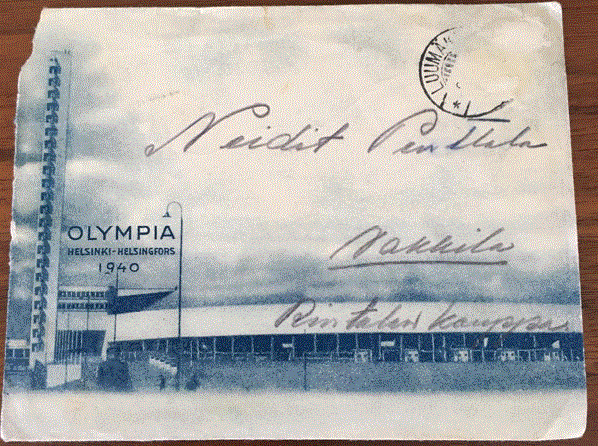 LUUMÄ
Neidit Penttala
OLYMPIA
HELSINKI-HELSINGFORS
1940
Nakkila
Rintalan kauppa.